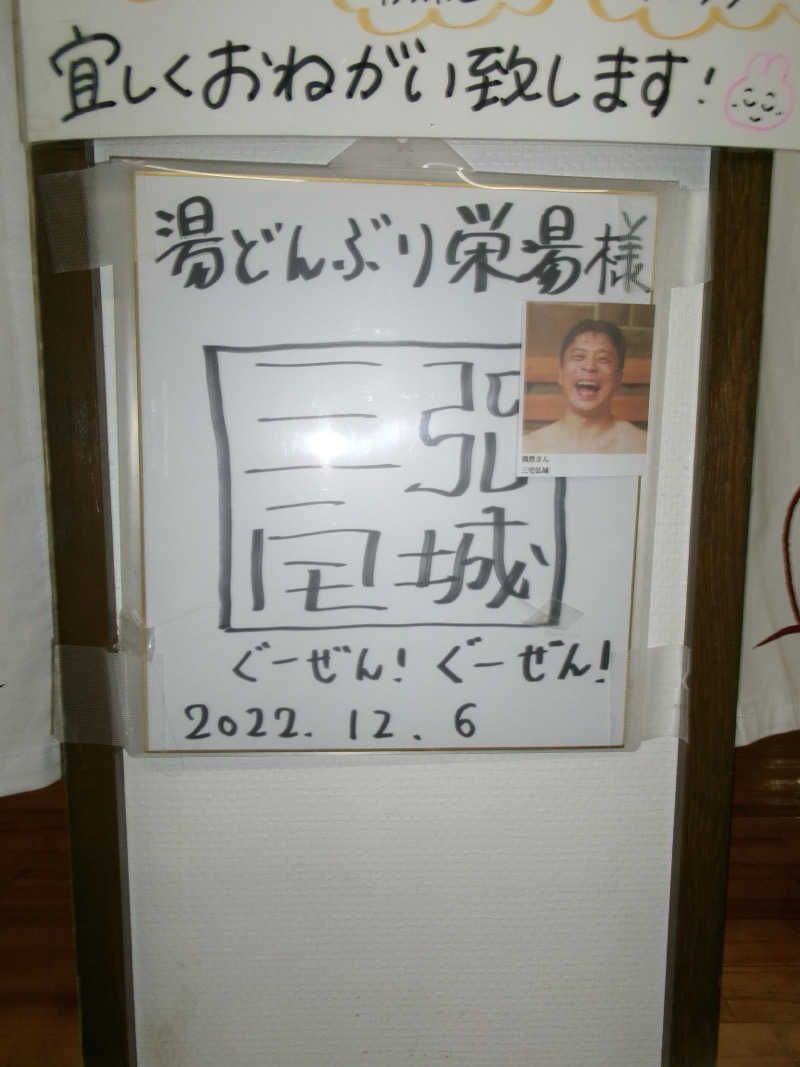 宜しくおねがい致します!
湯どんぶり栄湯様
三宅弘城
磯貝さん
三宅弘城
ぐーぜん!ぐーぜん!
2022.12.6